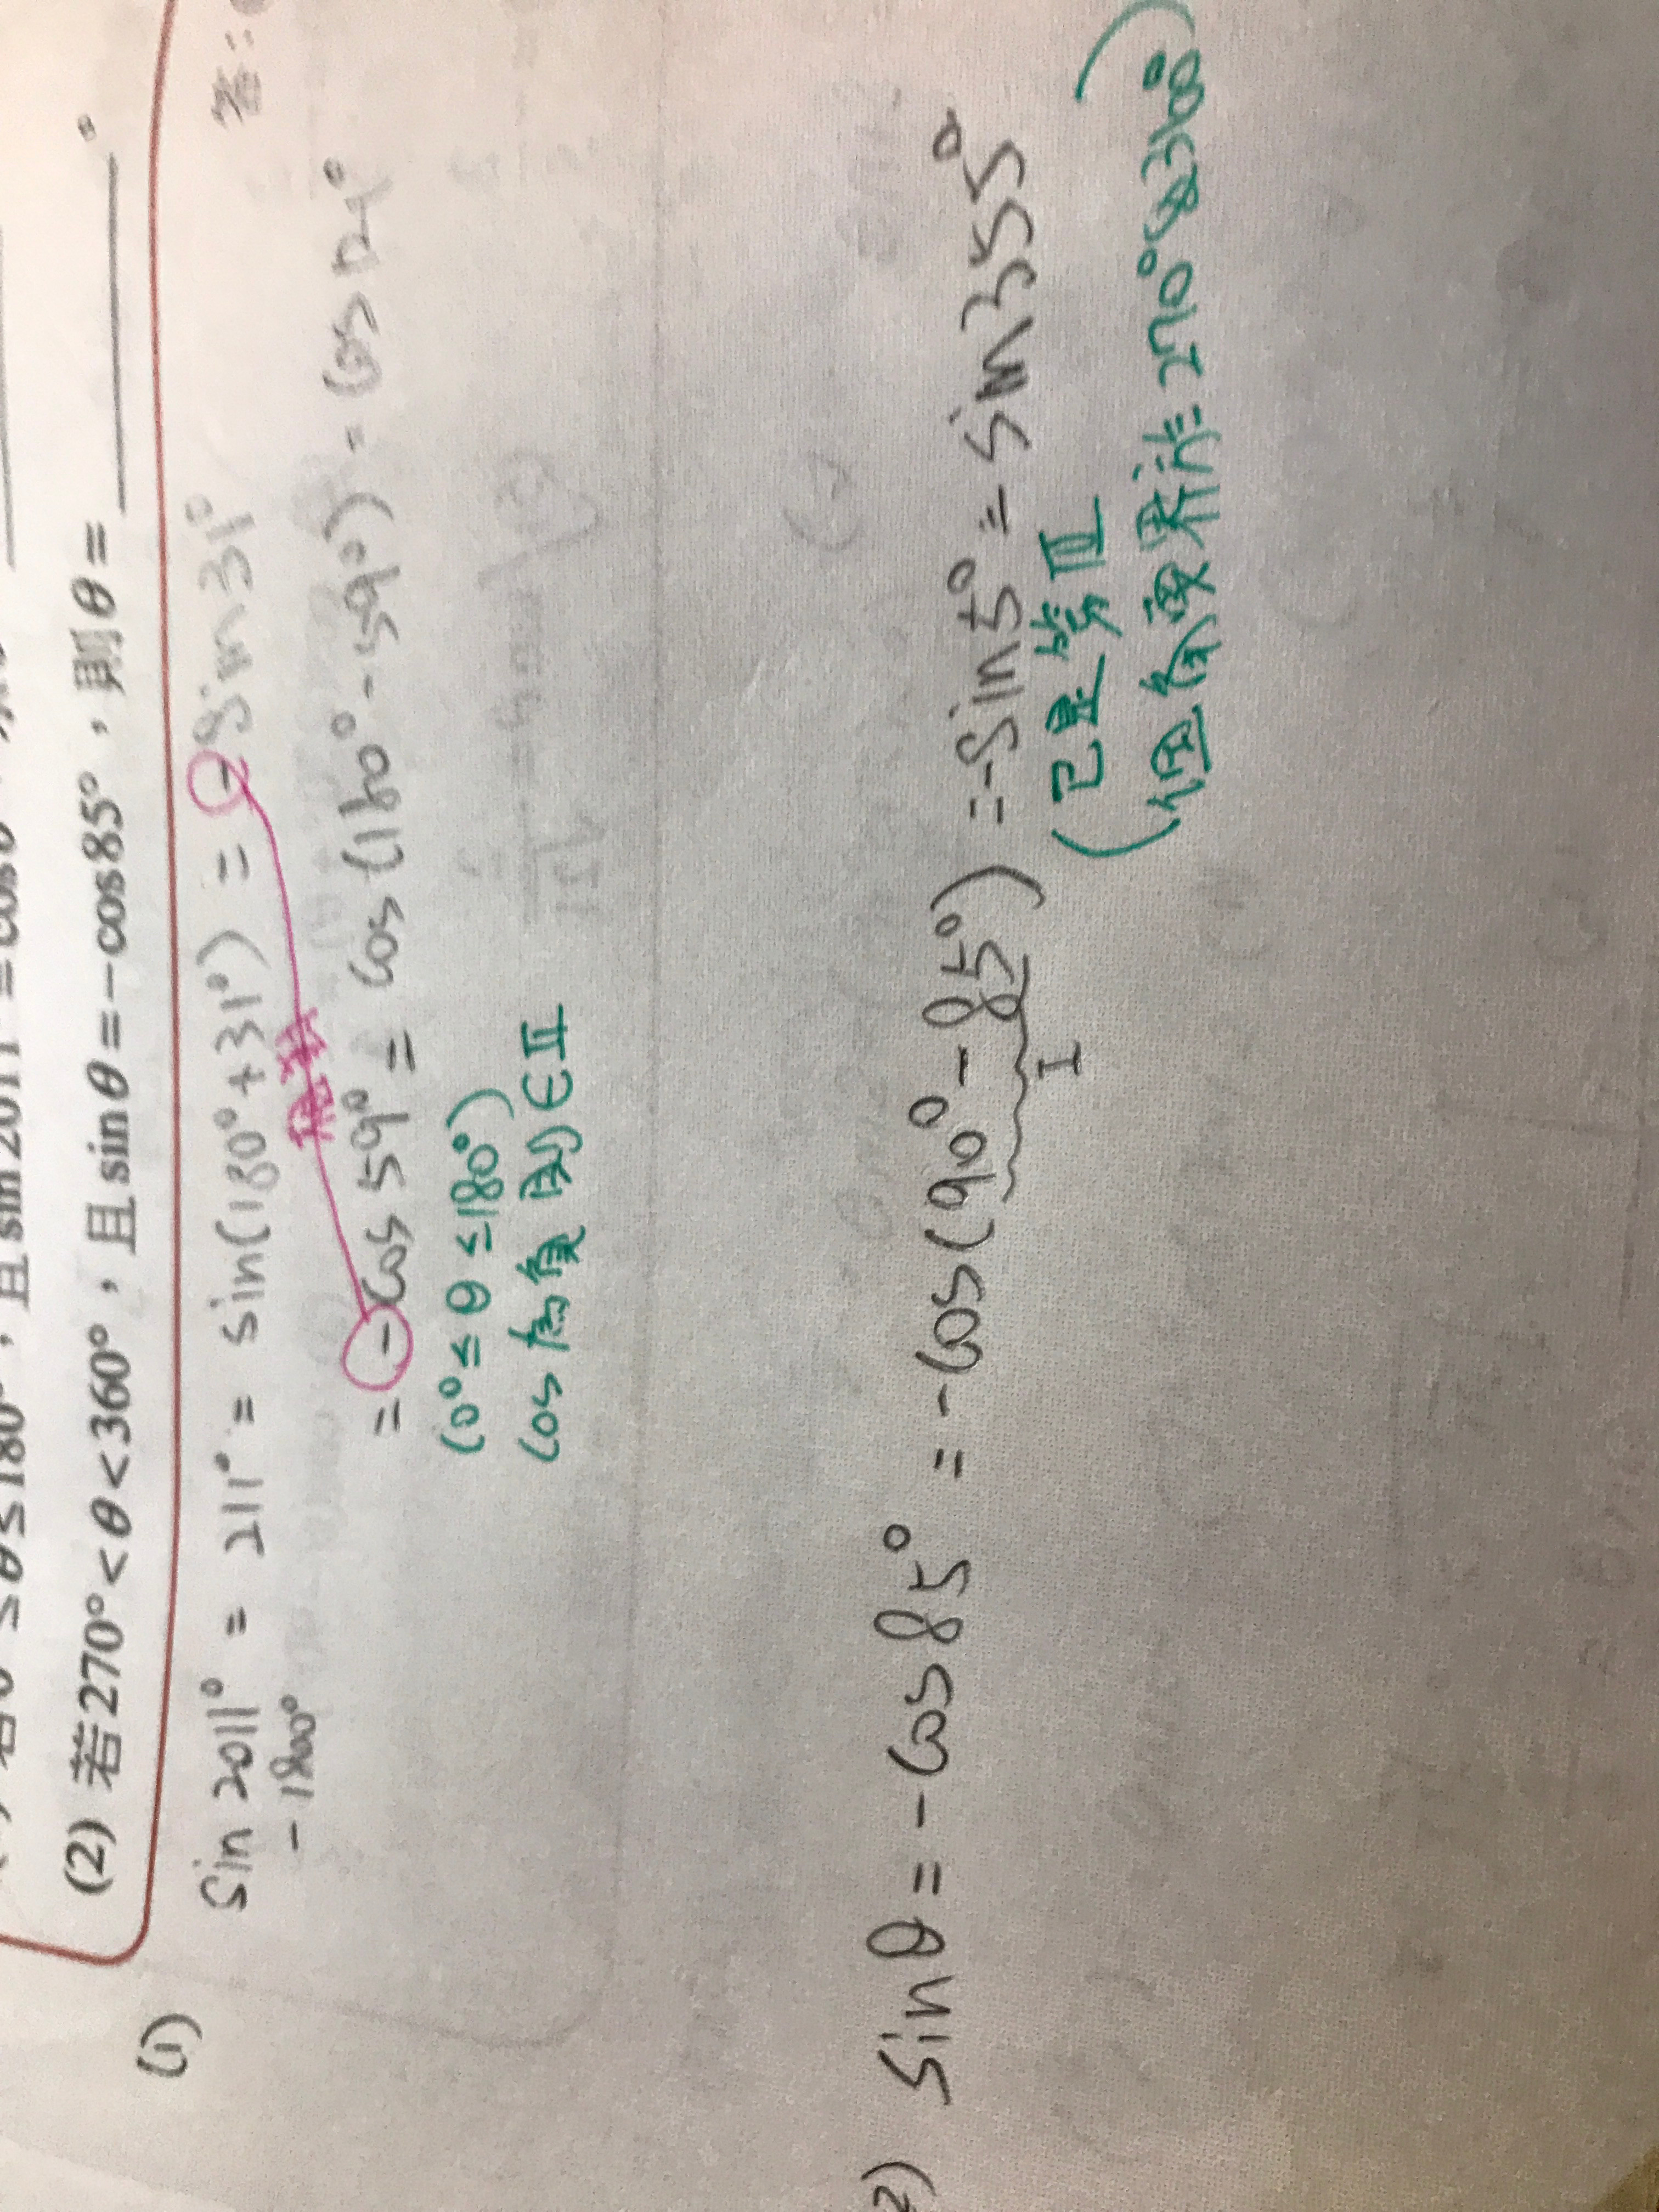 ≤θ≤180°，且sin2011°=cosθ
(2) 若270°<θ<360°，且sinθ=-cos85°，則θ=______°
答：
(1)
sin2011° = 211° = sin(180°+31°) = -sin31°
-1800°
無關
= -cos59° = cos(180°-59°) = cos121°
(0°≤θ≤180°)
cos為負 則∈Ⅱ
2) sinθ = -cos85° = -cos(90°-85°) = -sin5° = sin355°
I
(已是第Ⅲ
(但角度界於270°~360°)